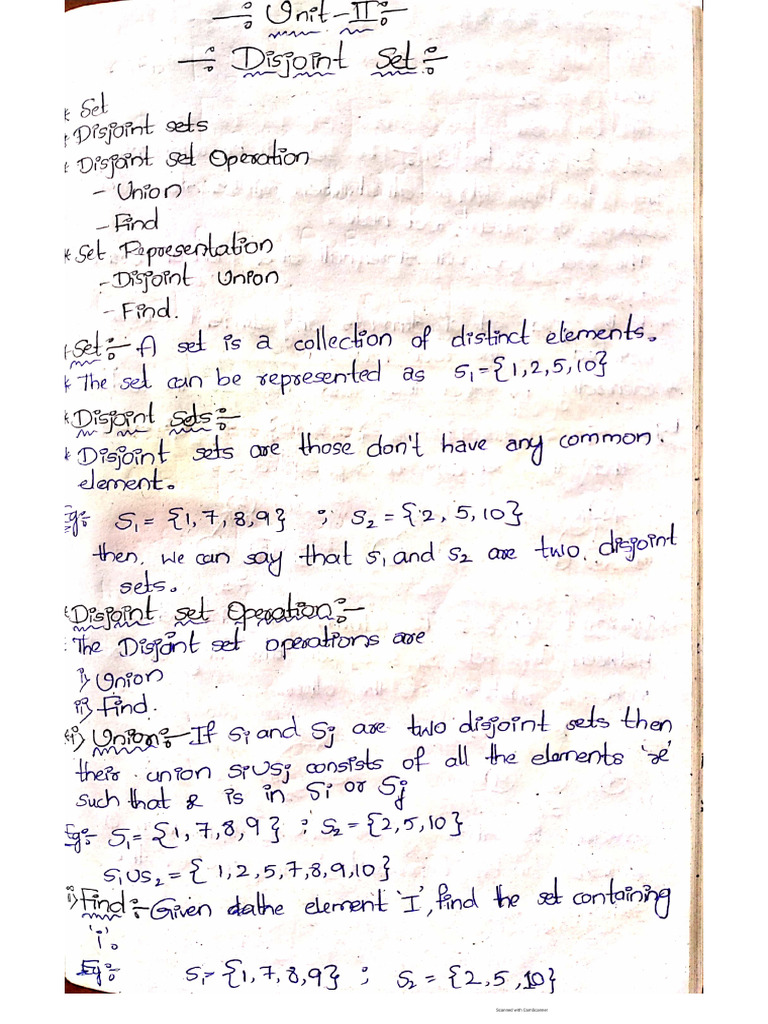 -: Unit-II :-
-: Disjoint Set :-
* Set
* Disjoint sets
* Disjoint set Operation
- Union
- Find
* Set Representation
- Disjoint Union
- Find.
* Set:- A set is a collection of distinct elements.
* The set can be represented as S₁={1,2,5,10}
* Disjoint Sets:-
* Disjoint sets are those don't have any common.
element.
Eg:- S₁ = {1,7,8,9} ; S₂ = {2, 5,10}
then, we can say that S₁ and S₂ are two disjoint
sets.
* Disjoint set Operation:-
The Disjoint set operations are
i) Union
ii) Find.
* i) Union:- If Si and Sj are two disjoint sets then
their union SiUSj consists of all the elements 'x'
such that x is in Si or Sj
Eg:- S₁= {1,7,8,9} ; S₂= {2,5,10}
S₁US₂ = { 1,2,5,7,8,9,10}
ii) Find:- Given the element 'I', find the set containing
'i'.
Eg:- S₁- {1,7,8,9} ; S₂ = {2,5,10}
Scanned with CamScanner